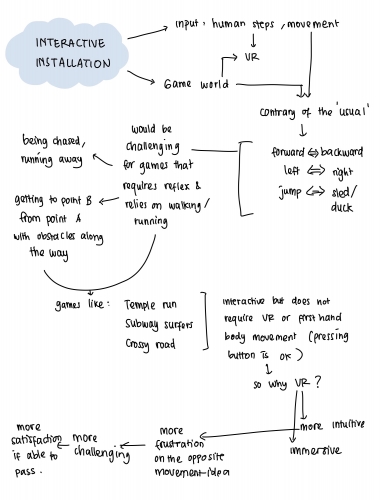 INTERACTIVE
INSTALLATION
input, human steps, movement
VR
Game world
contrary of the 'usual'
forward ⇔ backward
left ⇔ right
jump ⇔ sled/
duck
would be
challenging
for games that
requires reflex &
relies on walking/
running
being chased,
running away
getting to point B
from point A
with obstacles along
the way
games like: Temple run
Subway surfers
Crossy road
interactive but does not
require VR or first hand
body movement (pressing
button is ok)
so why VR?
more intuitive
immersive
more
frustration
on the opposite
movement idea
more
challenging
more
satisfaction
if able to
pass.